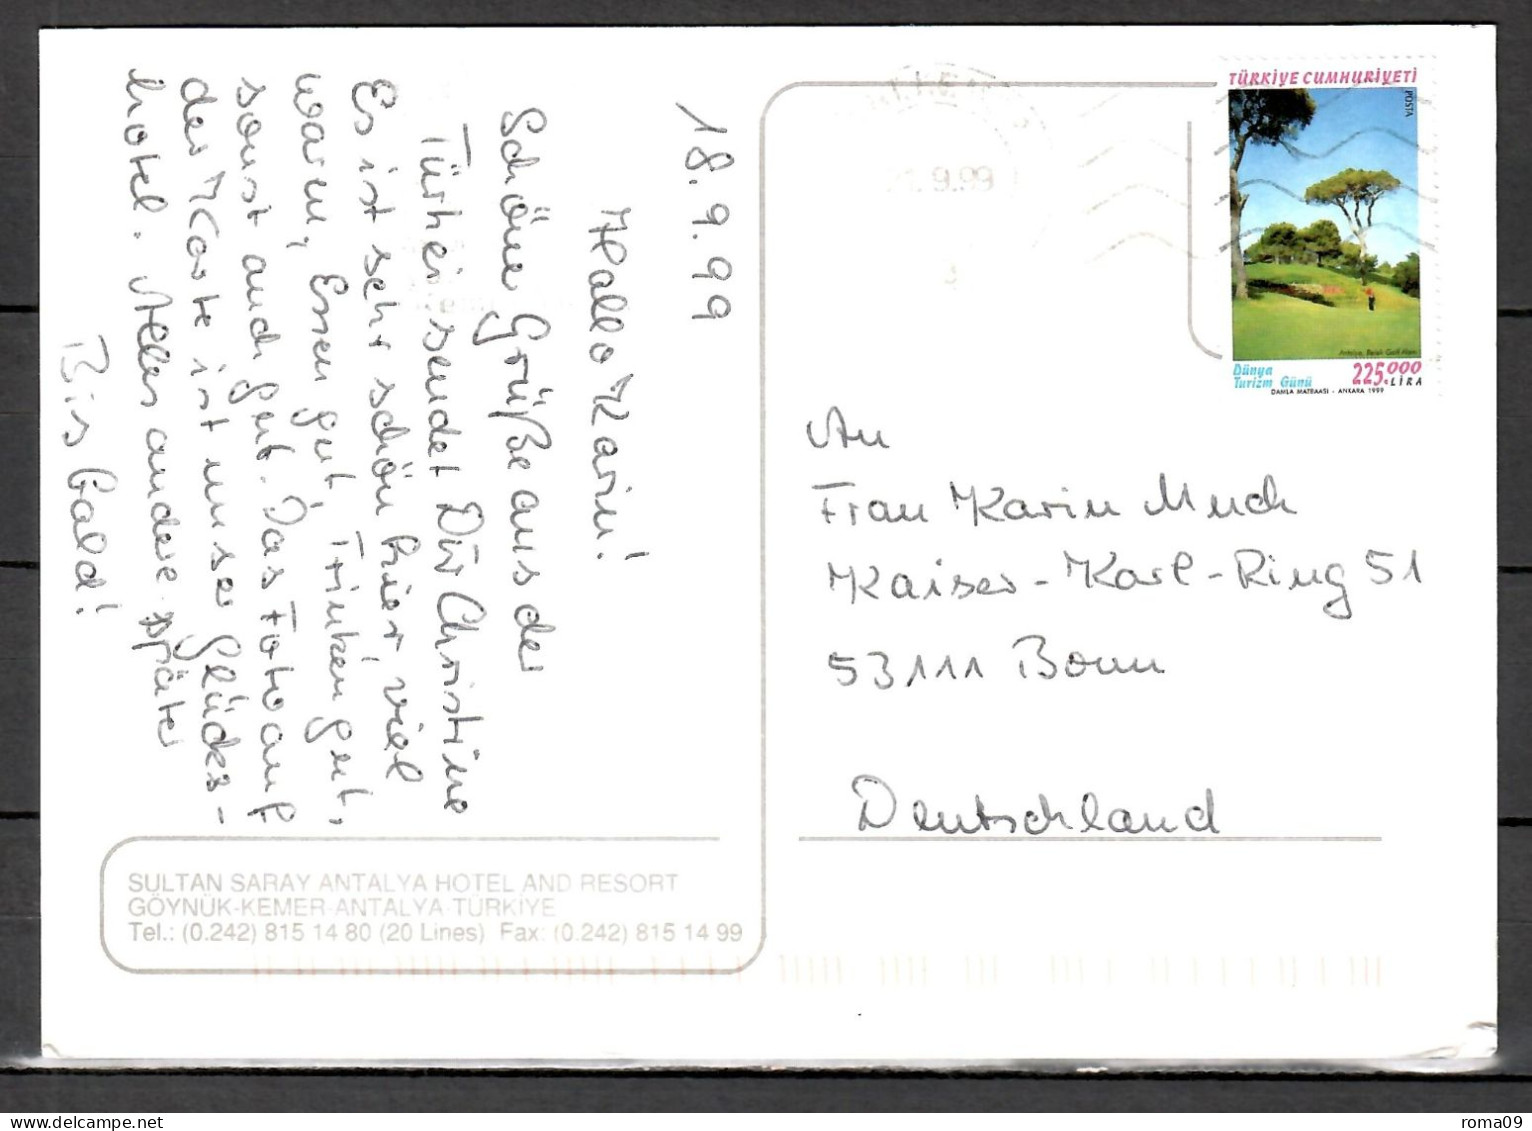 18.9.99
Hallo Karin!
Schöne Grüße aus der
Türkei sendet Dir Christine
Es ist sehr schön hier, viel
warm, Essen gut, Trinken gut,
sonst auch gut. Das Foto auf
der Karte ist unser Glücks-
hotel. Alles andere später
Bis bald!
TÜRKİYE CUMHURİYETİ
POSTA
Antalya, Belek Golf Alanı
Dünya
Turizm Günü
225.000
LİRA
DAMLA MATBAASI - ANKARA 1999
.9.99
An
Frau Karin Much
Kaiser-Karl-Ring 51
53111 Bonn
Deutschland
SULTAN SARAY ANTALYA HOTEL AND RESORT
GÖYNÜK-KEMER-ANTALYA-TÜRKİYE
Tel.: (0.242) 815 14 80 (20 Lines) Fax: (0.242) 815 14 99
delcampe.net
roma09